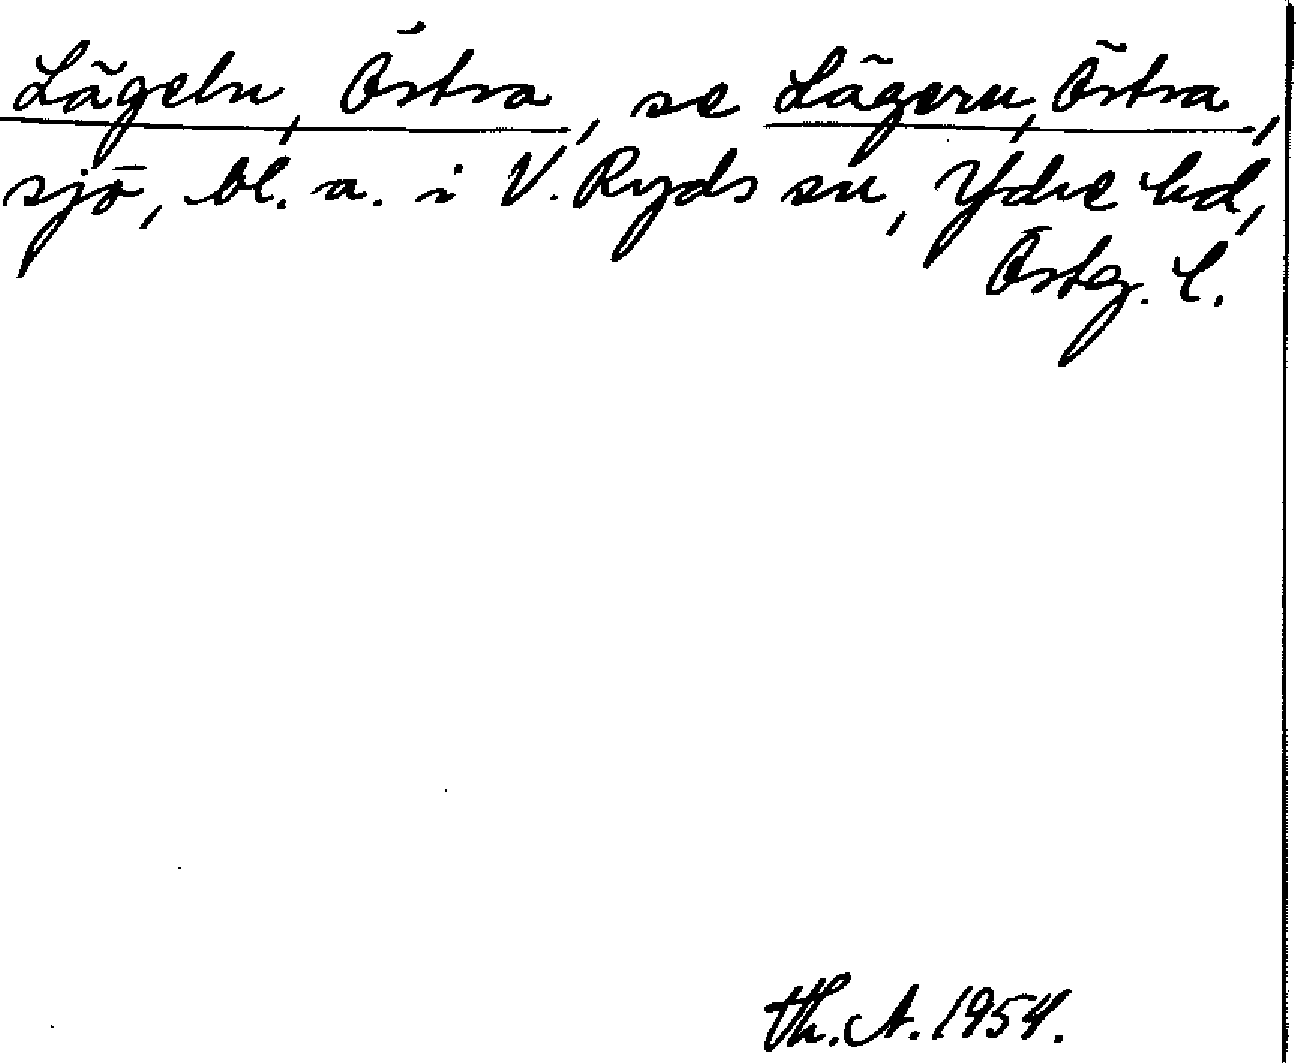 Lägeln, Östra, se Lägern, Östra,
sjö, bl. a. i V. Ryds sn, Ydre hd,
Östg. l.
Th. A. 1954.